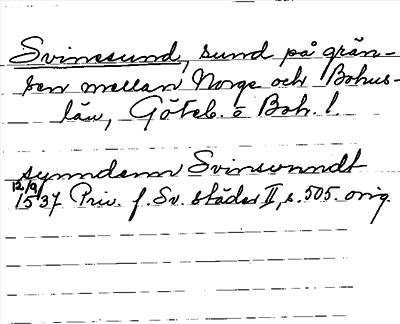 Svinesund, sund på grän-
sen mellan Norge och Bohus-
län, Göteb. o Boh. l.
synndenn Svinsunndt
12/9 1537 Priv. f. Sv. städer II, s. 505. orig.